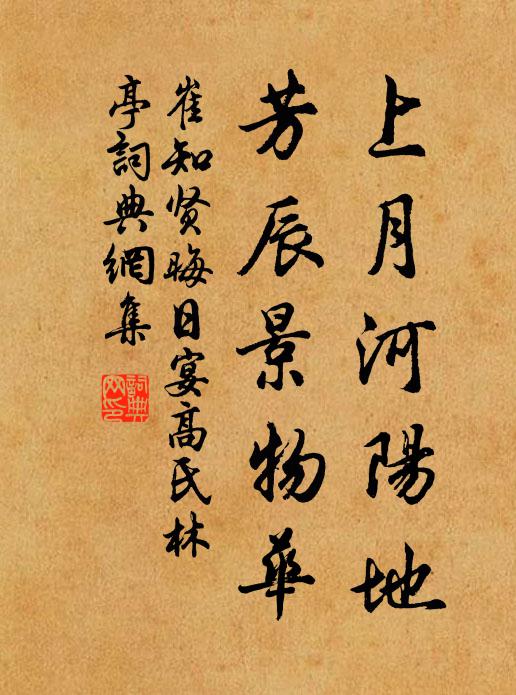 上月河陽地
芳辰景物華
崔知贤晦日宴高氏林
亭詞典網集
詞典
网印